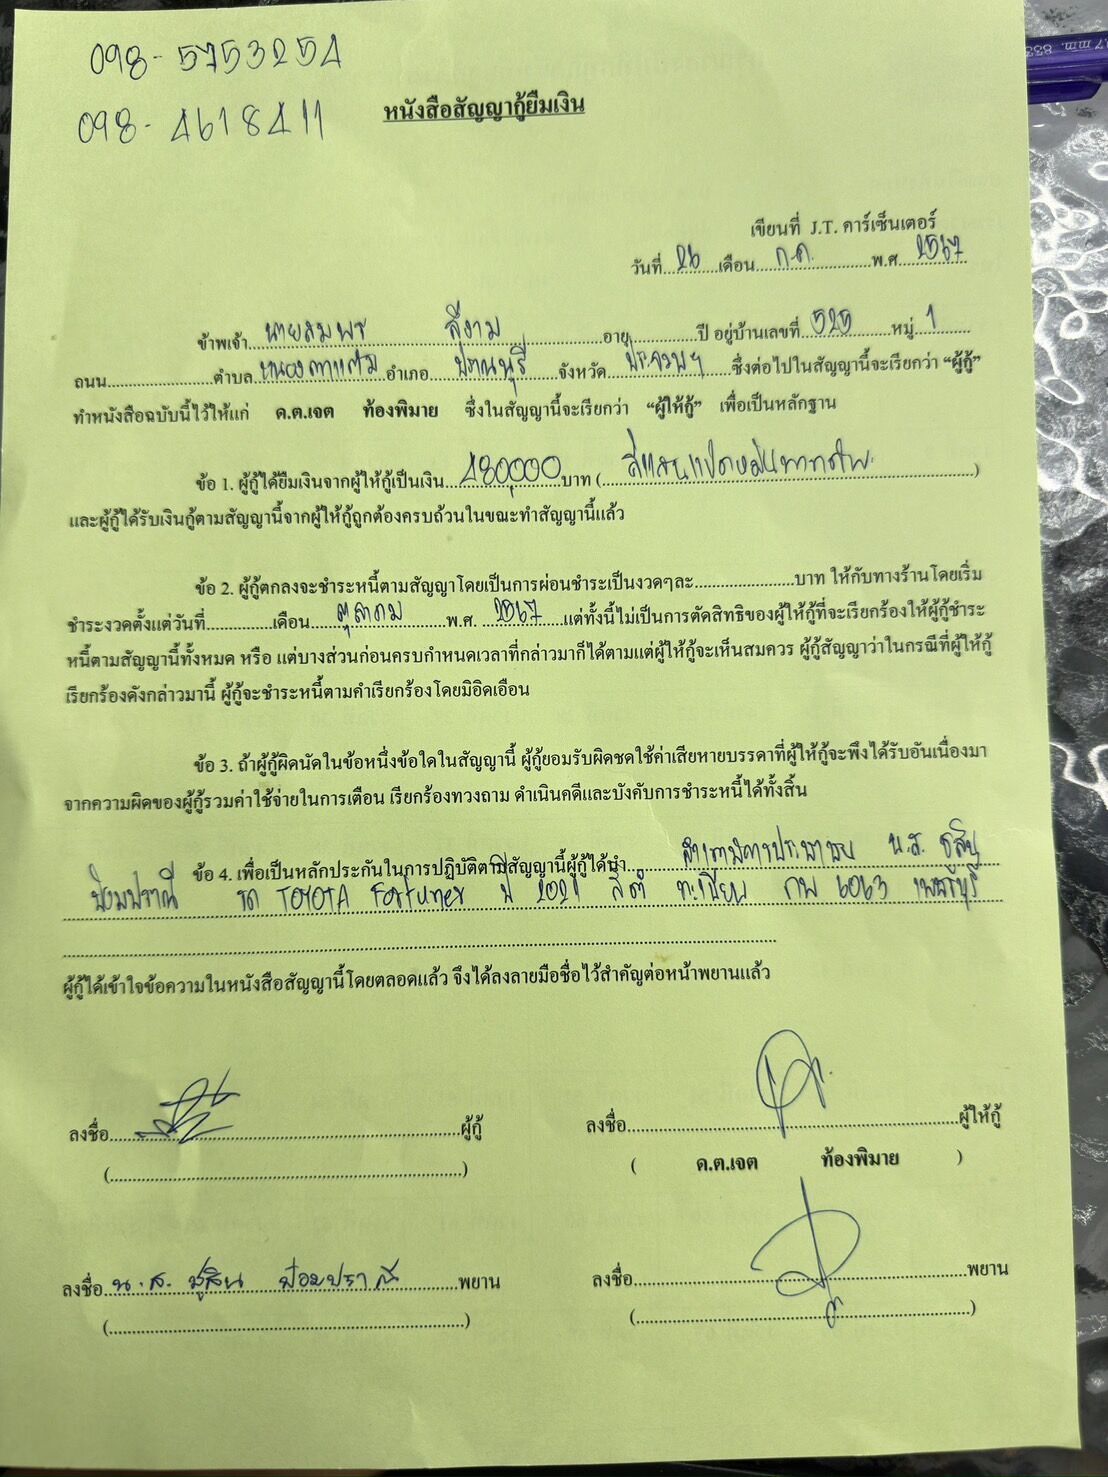 098-5753254
098-4618411
หนังสือสัญญากู้ยืมเงิน
เขียนที่ J.T. คาร์เซ็นเตอร์
วันที่ 26 เดือน ก.ค. พ.ศ. 2567
ข้าพเจ้า นายสมพร สีงาม อายุ ปี อยู่บ้านเลขที่ 525 หมู่ 1
ถนน ตำบล หนองตาแต้ม อำเภอ ปราณบุรี จังหวัด ประจวบฯ ซึ่งต่อไปในสัญญานี้จะเรียกว่า “ผู้กู้”
ทำหนังสือฉบับนี้ไว้ให้แก่ ด.ต.เจต ท้องพิมาย ซึ่งในสัญญานี้จะเรียกว่า “ผู้ให้กู้” เพื่อเป็นหลักฐาน
ข้อ 1. ผู้กู้ได้ยืมเงินจากผู้ให้กู้เป็นเงิน 480,000 บาท ( สี่แสนแปดหมื่นบาท )
และผู้กู้ได้รับเงินกู้ตามสัญญานี้จากผู้ให้กู้ถูกต้องครบถ้วนในขณะทำสัญญานี้แล้ว
ข้อ 2. ผู้กู้ตกลงจะชำระหนี้ตามสัญญาโดยเป็นการผ่อนชำระเป็นงวดๆละ บาท ให้กับทางร้านโดยเริ่ม
ชำระงวดตั้งแต่วันที่ เดือน ตุลาคม พ.ศ. 2567 แต่ทั้งนี้ไม่เป็นการตัดสิทธิของผู้ให้กู้ที่จะเรียกร้องให้ผู้กู้ชำระ
หนี้ตามสัญญานี้ทั้งหมด หรือ แต่บางส่วนก่อนครบกำหนดเวลาที่กล่าวมาก็ได้ตามแต่ผู้ให้กู้จะเห็นสมควร ผู้กู้สัญญาว่าในกรณีที่ผู้ให้กู้
เรียกร้องดังกล่าวมานี้ ผู้กู้จะชำระหนี้ตามคำเรียกร้องโดยมิอิดเอือน
ข้อ 3. ถ้าผู้กู้ผิดนัดในข้อหนึ่งข้อใดในสัญญานี้ ผู้กู้ยอมรับผิดชดใช้ค่าเสียหายบรรดาที่ผู้ให้กู้จะพึงได้รับอันเนื่องมา
จากความผิดของผู้กู้รวมค่าใช้จ่ายในการเตือน เรียกร้องทวงถาม ดำเนินคดีและบังคับการชำระหนี้ได้ทั้งสิ้น
ข้อ 4. เพื่อเป็นหลักประกันในการปฏิบัติตามสัญญานี้ผู้กู้ได้นำ น.ส. ชูสิน
ป้อมปราณี รถ TOYOTA Fortuner ปี 2021 สีดำ ทะเบียน กพ 6063 เพชรบุรี
ผู้กู้ได้เข้าใจข้อความในหนังสือสัญญานี้โดยตลอดแล้ว จึงได้ลงลายมือชื่อไว้สำคัญต่อหน้าพยานแล้ว
ลงชื่อ ผู้กู้
ลงชื่อ ผู้ให้กู้
( ด.ต.เจต ท้องพิมาย )
ลงชื่อ น.ส. ชูสิน ป้อมปราณี พยาน
ลงชื่อ พยาน